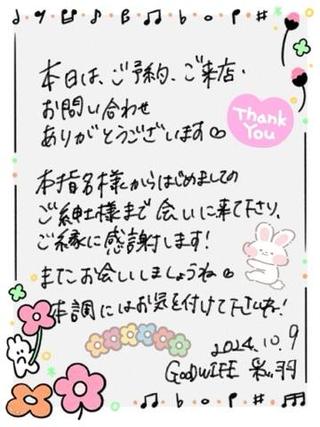 本日は、ご予約、ご来店、
お問い合わせ
ありがとうございます
Thank
You
本指名様からはじめましての
ご紳士様まで会いに来て下さり、
ご縁に感謝します!
またお会いしましょうね
体調にはお気を付けて下さいね!
2024.10.9
GOODWIFE